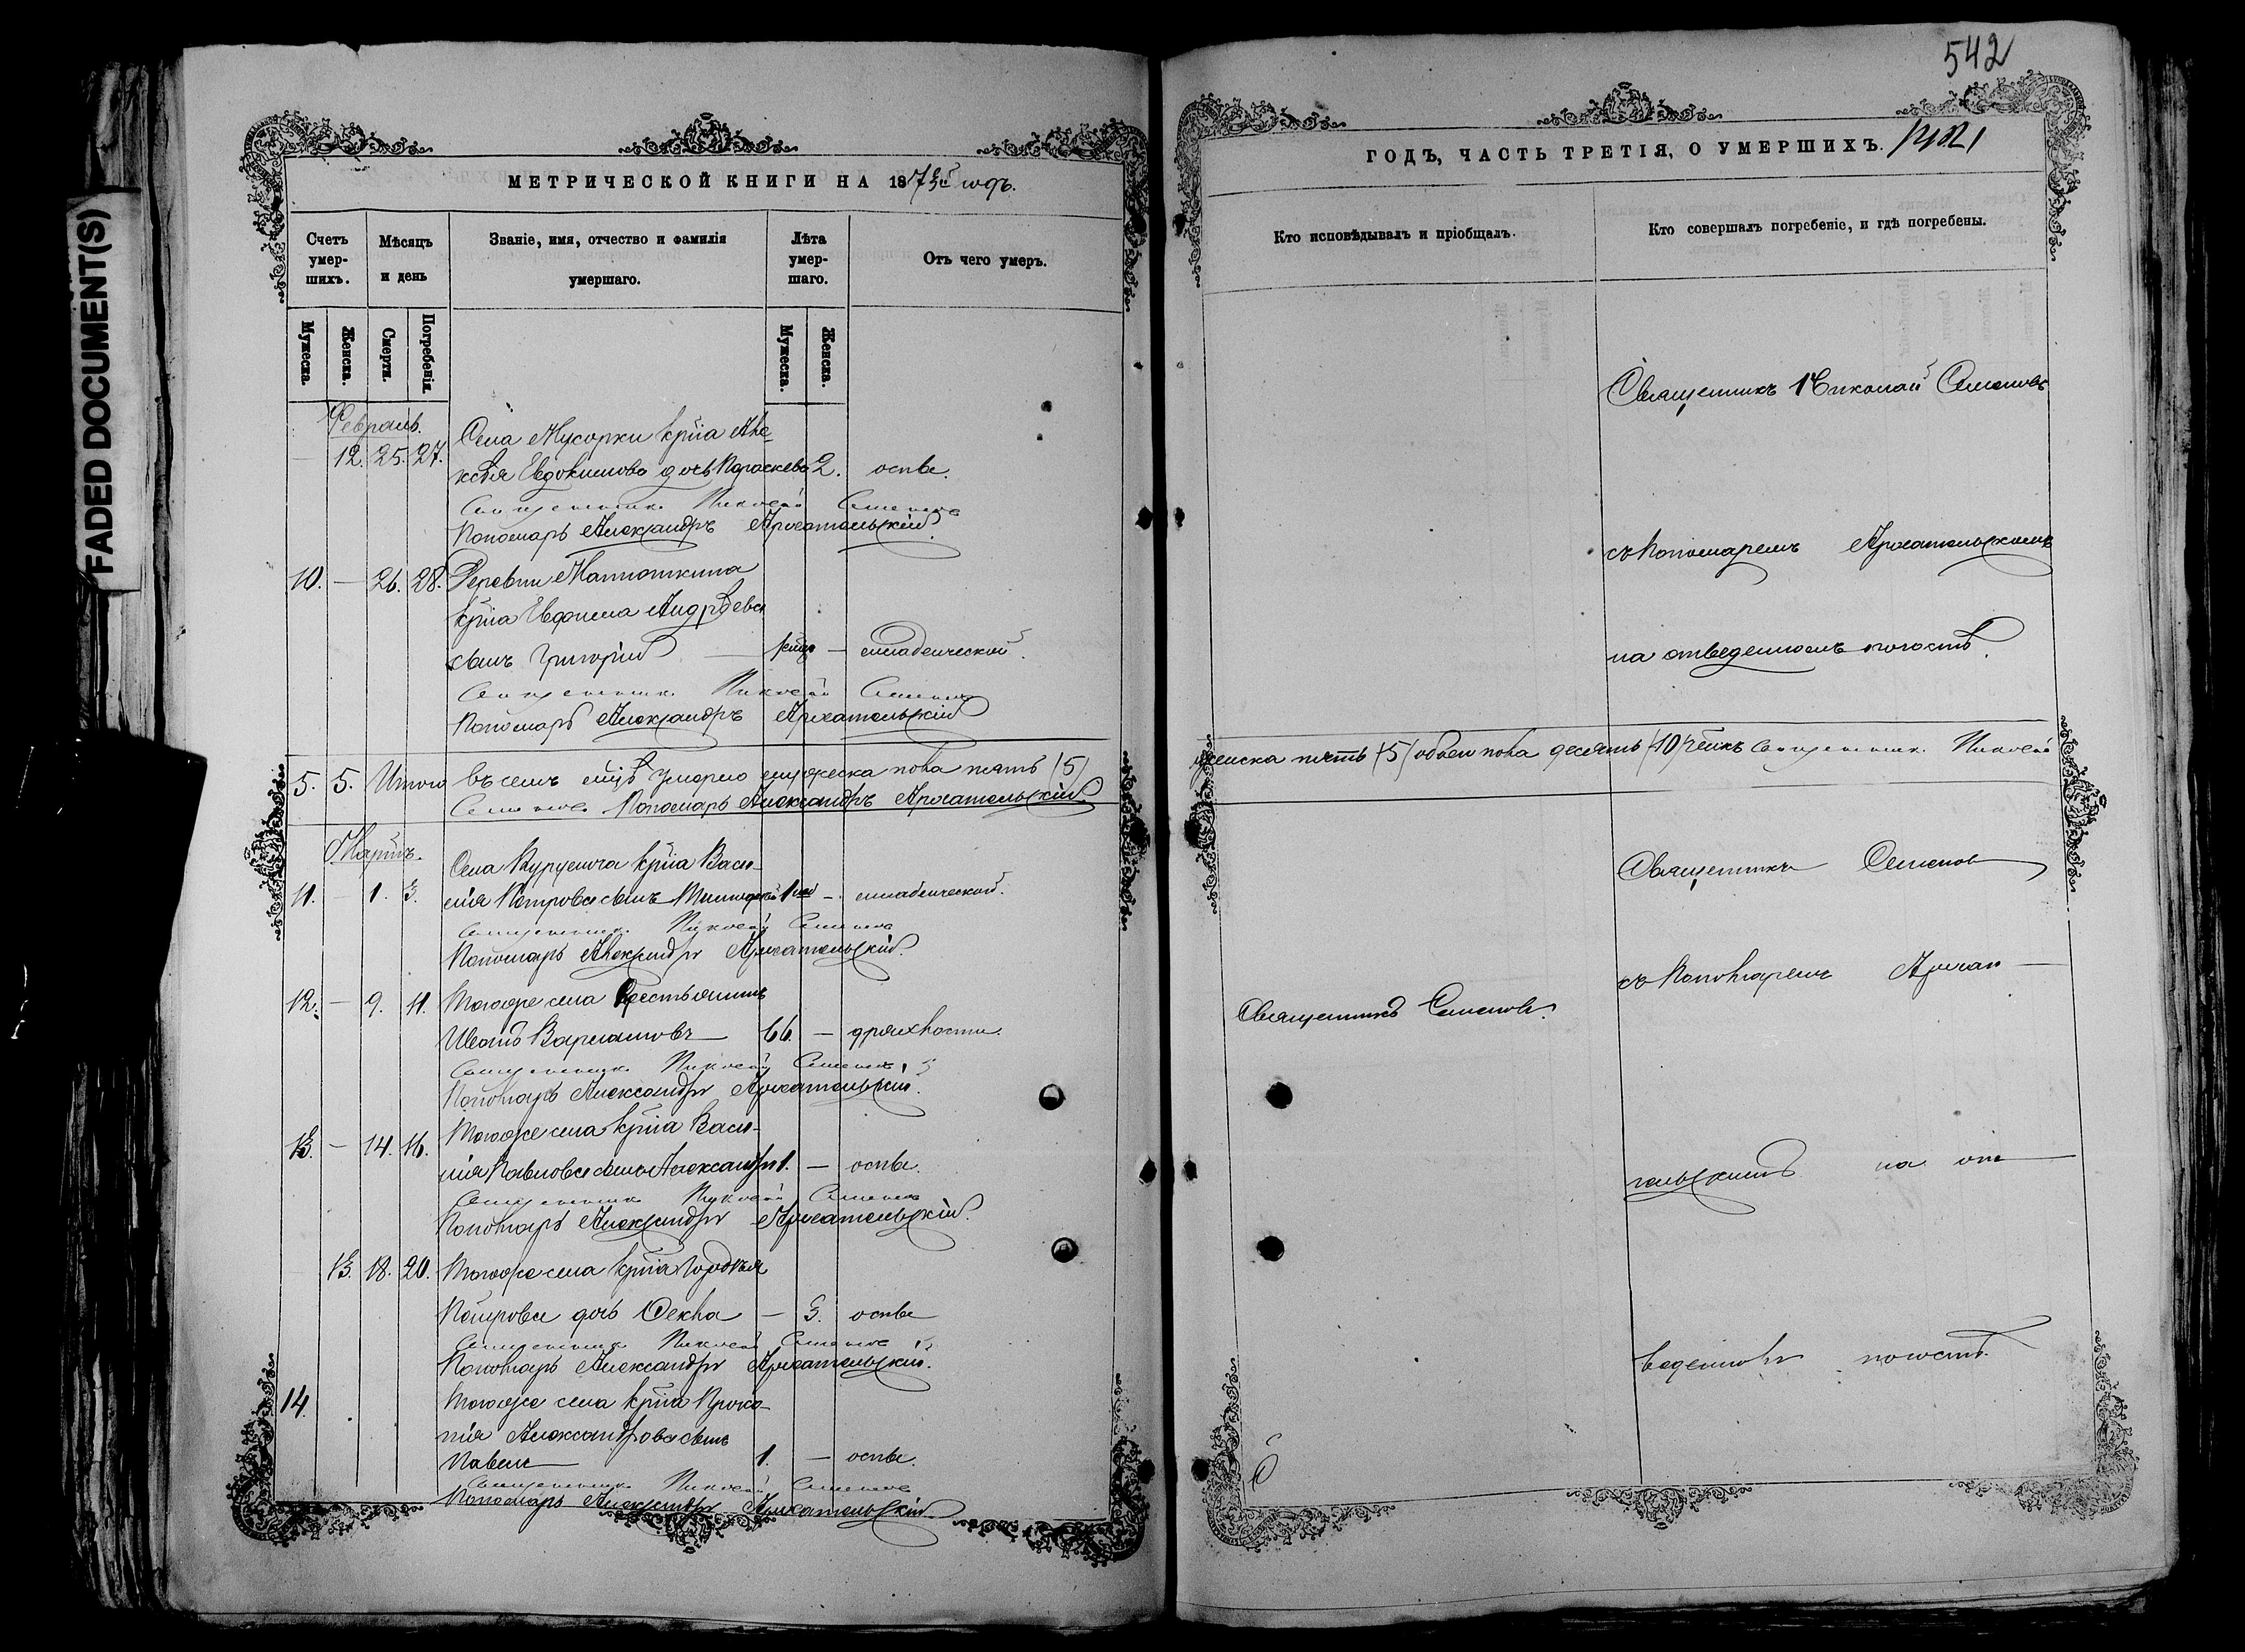 FADED DOCUMENT(S)
МЕТРИЧЕСКОЙ КНИГИ НА 1873й годъ.
Счетъ умер-шихъ.
Мѣсяцъ и день
Званіе, имя, отчество и фамилія умершаго.
Лѣта умер-шаго.
Отъ чего умеръ.
Мужеска.
Женска.
Смерти.
Погребенія.
Мужеска.
Женска.
Февраль.
Села Мусорки кр̃на Але-
12. 25. 27. ксѣя Евдокимова дочь Параскева 2. оспы.
Священникъ Николай Семеновъ
Пономарь Александръ Архангельскій.
10. — 26. 28. Деревни
кр̃на Евфима Андрѣева
сынъ Григорій — — младенческой.
Священникъ Николай Семеновъ
Пономарь Александръ Архангельскій
5. 5. Итого въ семъ м̃цѣ умерло мужеска пола пять /5/
Семеновъ Пономарь Александръ Архангельскій.
Мартъ.
Села Курумоча кр̃на Васи-
11. — 1. 3. лія Петрова сынъ 1 — младенческой.
Священникъ Николай Семеновъ
Пономарь Александръ Архангельскій.
12. — 9. 11. Тогоже села Крестьянинъ
Иванъ Варламовъ — 66. — дряхлости.
Священникъ Николай Семеновъ
Пономарь Александръ Архангельскій.
13. — 14. 16. Тогоже села кр̃на Васи-
лія Павлова сынъ Александръ 1. — оспы.
Священникъ Николай Семеновъ
Пономарь Александръ Архангельскій.
13. 18. 20. Тогоже села кр̃на
Петрова дочь Фекла — 3. оспы
Священникъ Николай Семеновъ
Пономарь Александръ Архангельскій.
14. Тогоже села кр̃на Проко-
пія Александрова сынъ
Павелъ — 1. — оспы.
Священникъ Николай Семеновъ
Пономарь Александръ Архангельскій.
542
ГОДЪ, ЧАСТЬ ТРЕТІЯ, О УМЕРШИХЪ.
Кто исповѣдывалъ и пріобщалъ.
Кто совершалъ погребеніе, и гдѣ погребены.
Священникъ Николай Семеновъ
съ Пономаремъ Архангельскимъ
на отведенномъ погостѣ.
женска пять /5/ обоего пола десять /10/ Священникъ Николай
Священникъ Семеновъ
съ Пономаремъ Архан-
Священникъ Семеновъ.
гельскимъ на от-
веденномъ погостѣ.